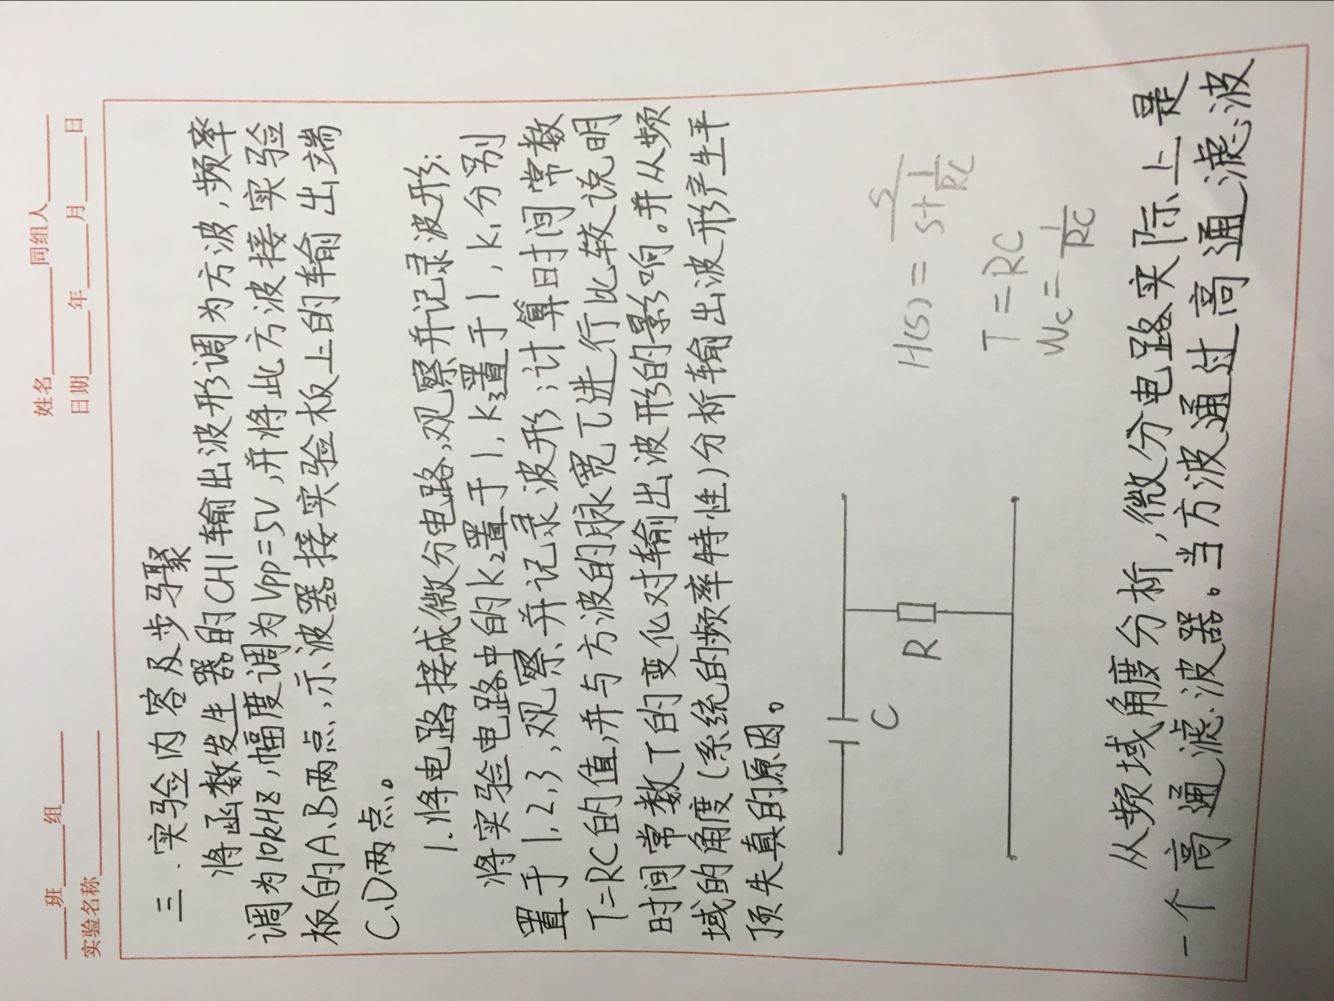 ____班______组_______
姓名__________同组人________
实验名称______________
日期______年______月______日
三.实验内容及步骤
将函数发生器的CH1输出波形调为方波,频率
调为10kHZ,幅度调为Vpp=5V,并将此方波接实验
板的A、B两点,示波器接实验板上的输出端
C、D两点。
1.将电路接成微分电路,观察并记录波形:
将实验电路中的K₂置于1,K₃置于1,K₁分别
置于1,2,3,观察并记录波形;计算时间常数
T=RC的值,并与方波的脉宽τ进行比较说明
时间常数T的变化对输出波形的影响。并从频
域的角度(系统的频率特性)分析输出波形产生平
顶失真的原因。
C
R
H(s) = s/(s+1/RC)
T=RC
Wc=1/RC
从频域角度分析,微分电路实际上是
一个高通滤波器。当方波通过高通滤波